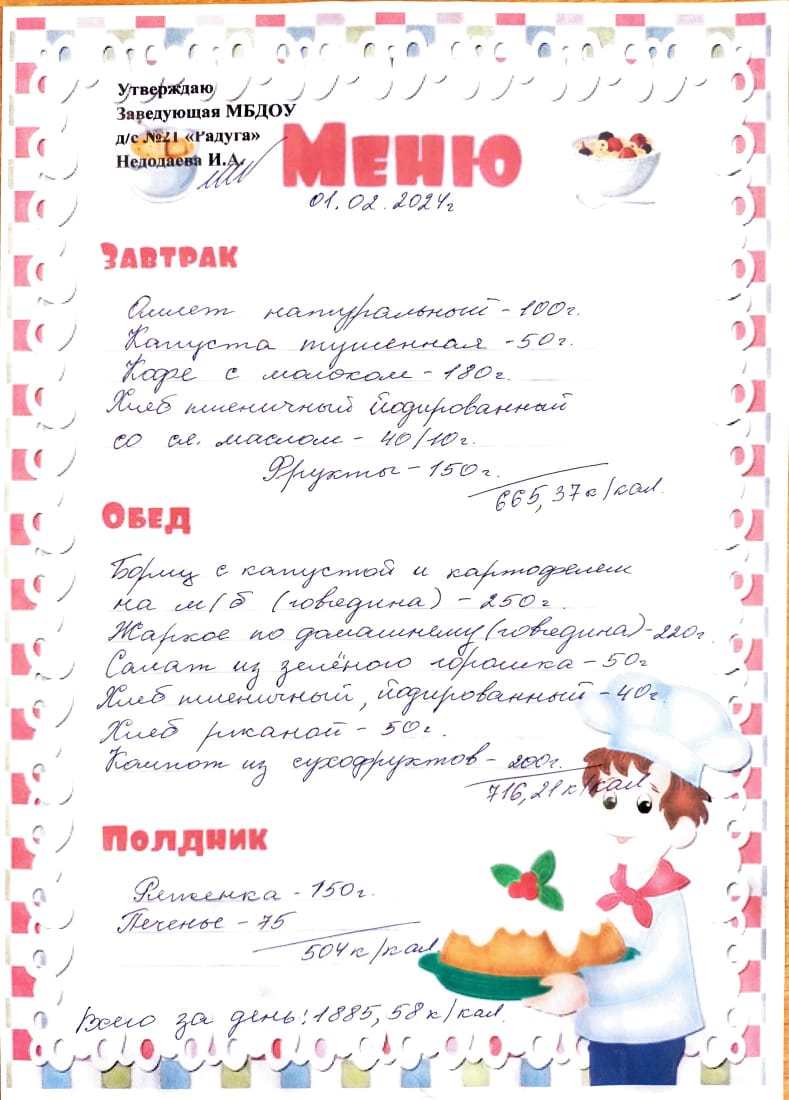 Утверждаю
Заведующая МБДОУ
д/с №21 «Радуга»
Недодаева И.А.
Меню
01.02.2024г
Завтрак
Омлет натуральный - 100г.
Капуста тушенная - 50г.
Кофе с молоком - 180г.
Хлеб пшеничный йодированный
со сл. маслом - 40/10г.
Фрукты - 150г.
665,37 к/кал.
Обед
Борщ с капустой и картофелем
на м/б (говядина) - 250г.
Жаркое по домашнему (говядина) - 220г.
Салат из зелёного горошка - 50г
Хлеб пшеничный, йодированный - 40г.
Хлеб ржаной - 50г.
Компот из сухофруктов - 200г.
716,21 к/кал
Полдник
Ряженка - 150г.
Печенье - 75
504 к/кал
Всего за день: 1885,58 к/кал.